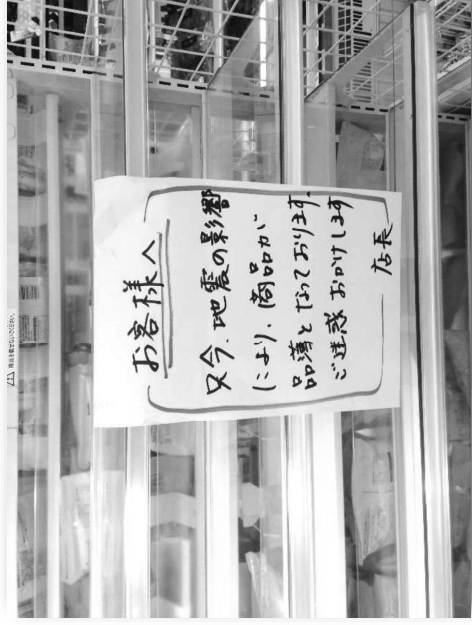 お客様へ
只今、地震の影響
により、商品が
品薄となっております。
ご迷惑おかけします
店長